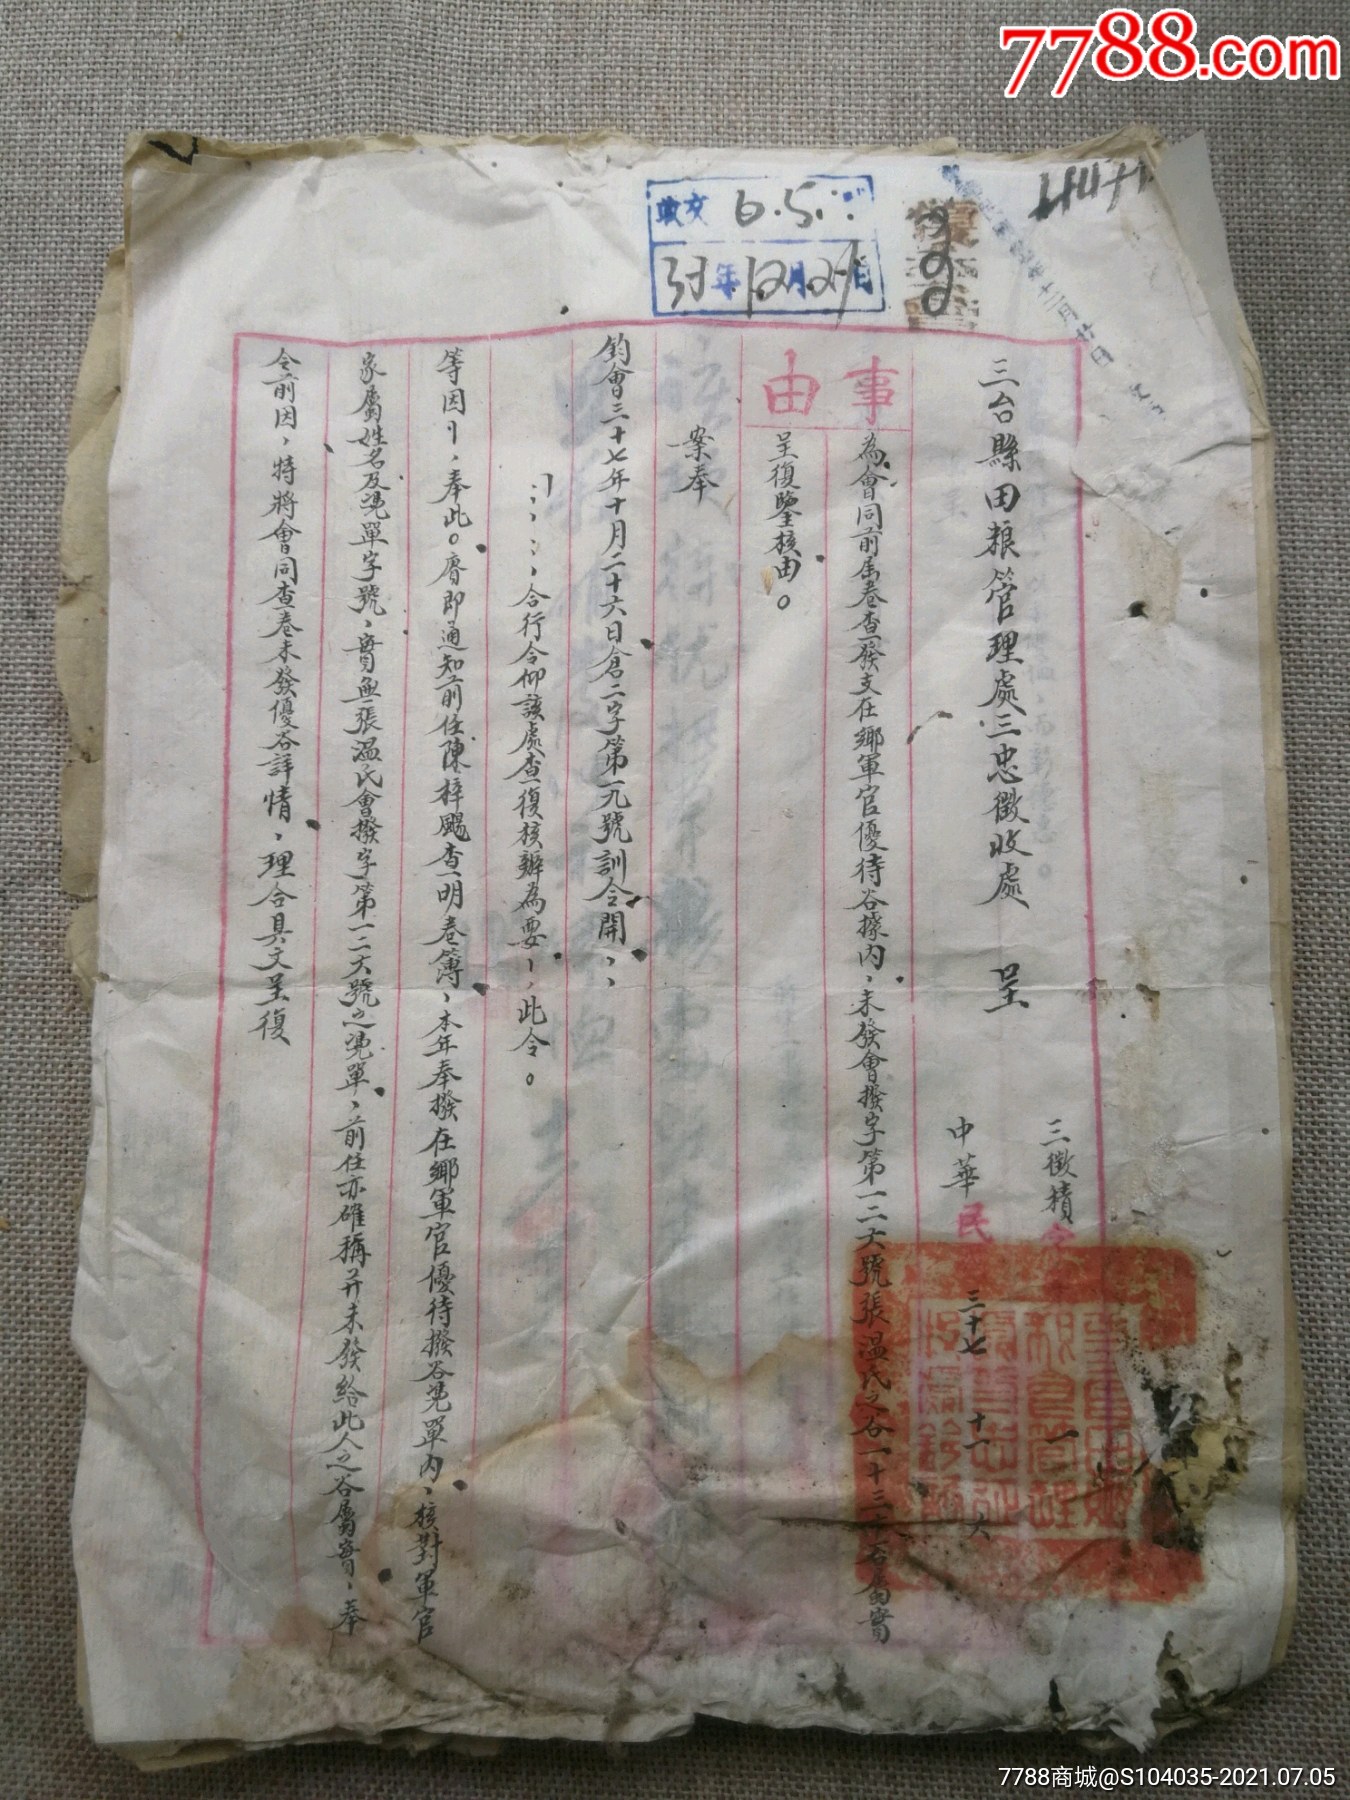 7788.com
收文 6.5
37年12月27日
三台縣田粮管理處三忠徵收處 呈
三徵積
中華民 三十七 十一 六
事由
為會同前屆卷查發支在鄉軍官優待谷據內，未發會撥字第一二六號張溫氏之谷一十三市石屬實
呈復鑒核由。
案奉
鈞會三十七年十月二十六日倉二字第一九號訓令開：
「……合行令仰該處查復核辦為要，此令。
等因」，奉此。膺即通知前任陳梓颺查明卷簿，本年奉撥在鄉軍官優待撥谷憑單內，核對軍官
家屬姓名及憑單字號，實無張溫氏會撥字第一二六號之憑單，前任亦確稱并未發給此人之谷屬實，奉
令前因，特將會同查卷未發優谷詳情，理合具文呈復
7788商城@S104035-2021.07.05